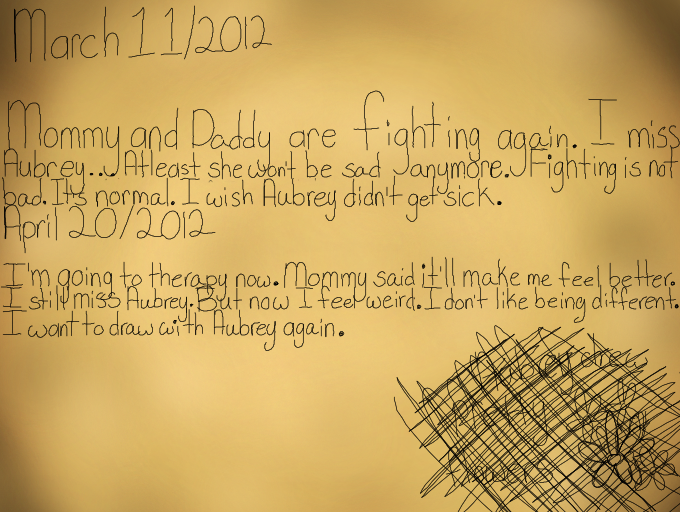 March 11/2012
Mommy and Daddy are fighting again. I miss
Aubrey... Atleast she won't be sad anymore. Fighting is not
bad. It's normal. I wish Aubrey didn't get sick.
April 20/2012
I'm going to therapy now. Mommy said it'll make me feel better.
I still miss Aubrey. But now I feel weird. I don't like being different.
I want to draw with Aubrey again.